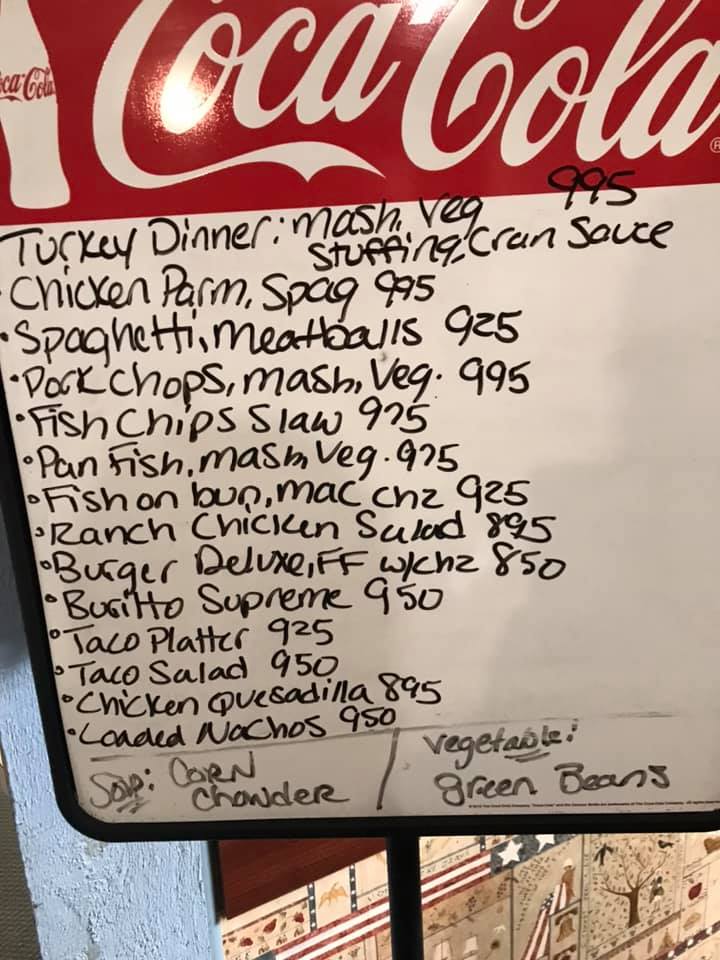 Coca-Cola
Coca-Cola ®
Turkey Dinner: mash, veg 995
stuffing, Cran Sauce
• Chicken Parm, Spag 995
• Spaghetti, meatballs 925
• Pork Chops, mash, Veg. 995
• Fish Chips Slaw 975
• Pan Fish, mash, Veg. 975
• Fish on bun, mac chz 925
• Ranch Chicken Salad 895
• Burger Deluxe, FF w/chz 850
• Buritto Supreme 950
• Taco Platter 925
• Taco Salad 950
• Chicken Quesadilla 895
• Loaded Nachos 950
Soup: Corn
Chowder
Vegetable:
Green Beans